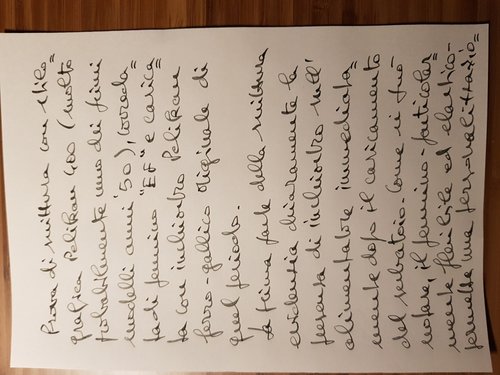 Prova di scrittura con stilo=
grafica Pelikan 400 (molto
probabilmente uno dei primi
modelli anni '50), correda=
ta di pennino "EF" e carica=
ta con inchiostro Pelikan
ferro-gallico originale di
quel periodo.
La prima parte della scrittura
evidenzia chiaramente la
presenza di inchiostro nell'
alimentatore immediata=
mente dopo il caricamento
del serbatoio. Come si può
notare, il pennino, particolar=
mente flessibile ed elastico,
permette una personalizzazio=